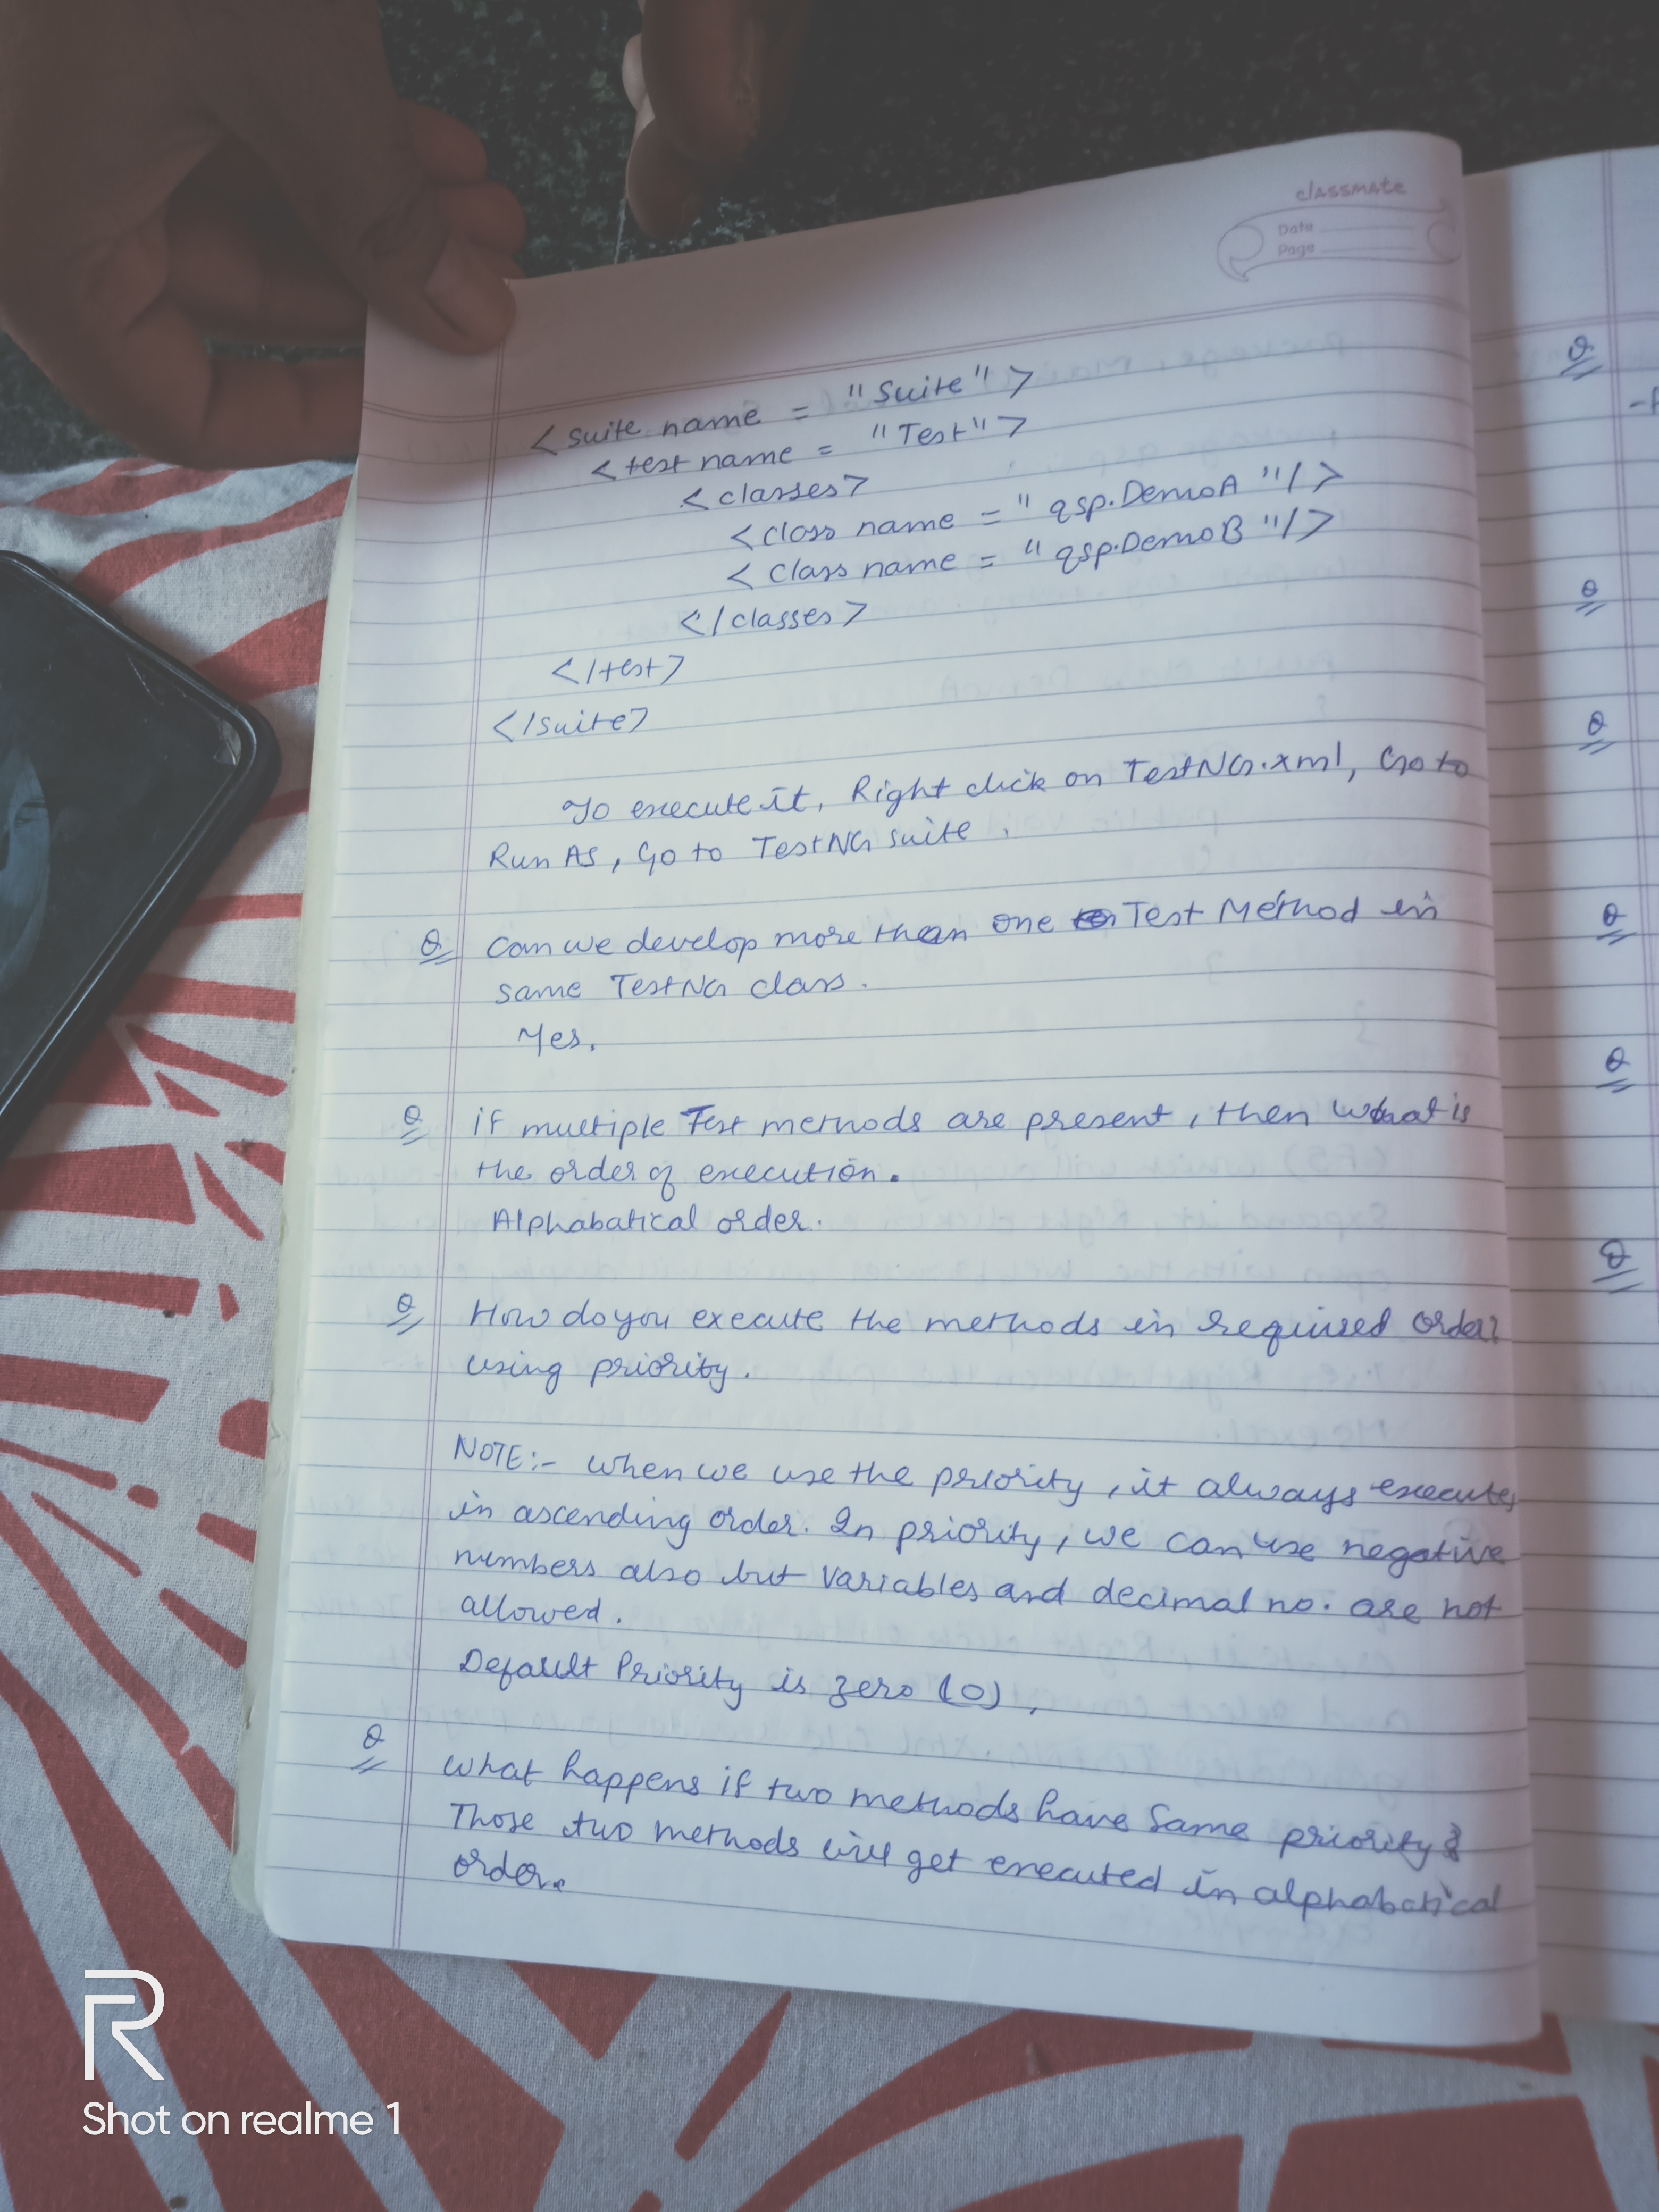 classmate
Date
Page
<suite name = "Suite">
<test name = "Test">
<classes>
<class name = "qsp.DemoA"/>
<class name = "qsp.DemoB"/>
</classes>
</test>
</suite>
To execute it, Right click on TestNG.xml, Go to
Run AS, Go to TestNG suite.
Q Can we develop more than one Test Method in
same TestNG class.
Yes.
Q if multiple Test methods are present, then what is
the order of execution.
Alphabatical order.
Q How do you execute the methods in required order?
using priority.
NOTE:- when we use the priority, it always executes
in ascending order. In priority, we can use negative
numbers also but variables and decimal no. are not
allowed.
Default Priority is zero (0),
Q What happens if two methods have Same priority?
Those two methods will get executed in alphabatical
order.
Q
Q
Q
Q
Q
Q
R
Shot on realme 1